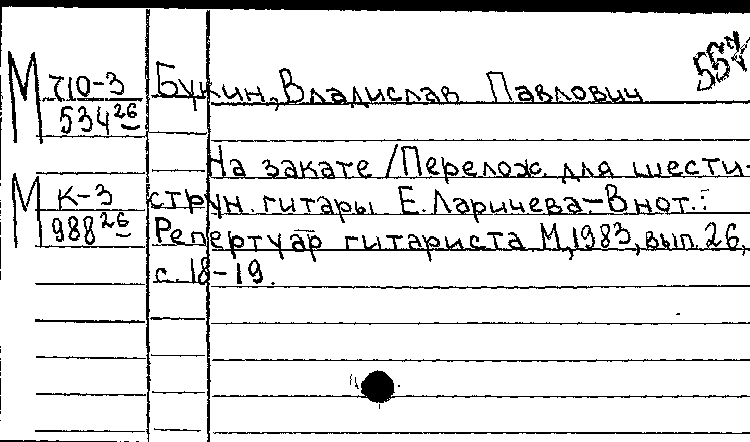 557
М 710-3 Букин, Владислав Павлович
534 26
На закате /Перелож. для шести-
М К-3 струн. гитары Е. Ларичева.–В нот.:
988 26 Репертуар гитариста М, 1983, вып. 26,
с. 18-19.